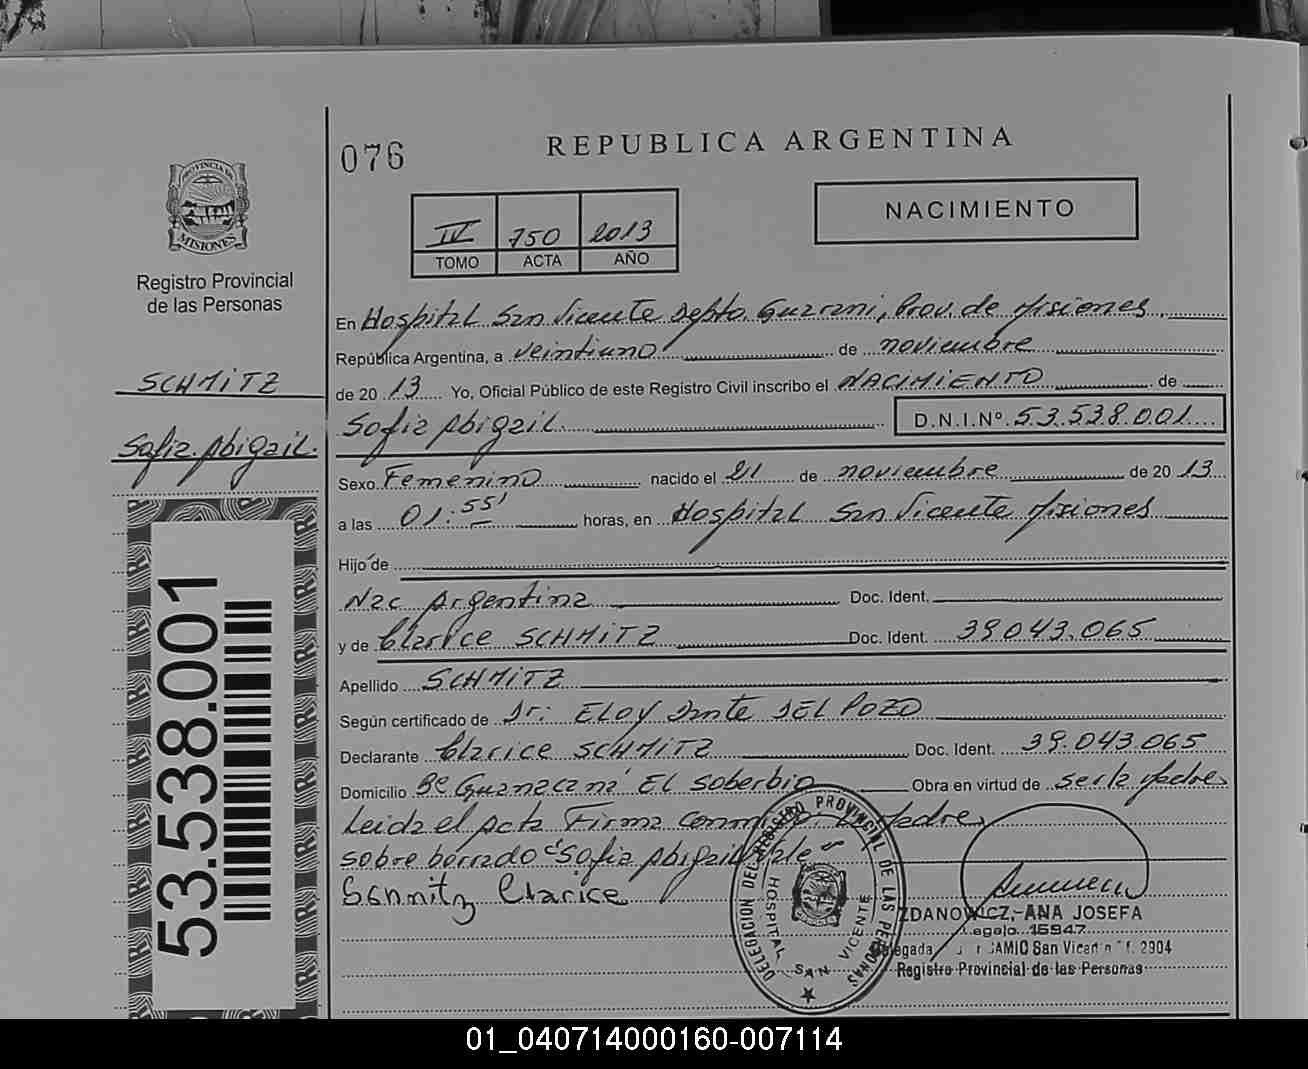 076
REPUBLICA ARGENTINA
PROVINCIA DE
MISIONES
Registro Provincial
de las Personas
IV 750 2013
TOMO ACTA AÑO
NACIMIENTO
SCHMITZ
Sofia Abigail.
53.538.001
En Hospital San Vicente Depto. Guarani, Prov. de Misiones
República Argentina, a veintiuno de noviembre
de 20 13 Yo, Oficial Público de este Registro Civil inscribo el NACIMIENTO de
Sofia Abigail. D.N.I.Nº 53.538.001
Sexo Femenino nacido el 21 de noviembre de 20 13
a las 01:55' horas, en Hospital San Vicente Misiones
Hijo de
Nac Argentina Doc. Ident.
y de Clarice SCHMITZ Doc. Ident. 39043.065
Apellido SCHMITZ
Según certificado de Dr: ELOY Dante DEL POZO
Declarante Clarice SCHMITZ Doc. Ident. 39.043.065
Domicilio Bº Guanacana El Soberbio Obra en virtud de ser la Madre
Leida el Acta Firma Madre
sobre borrado "Sofia Abigail Vale"
Schmitz Clarice
DELEGACION DEL REGISTRO PROVINCIAL DE LAS PERSONAS
HOSPITAL SAN VICENTE
ZDANOWICZ, ANA JOSEFA
Legajo 15947
CAMIO San Vicente 2904
Registro Provincial de las Personas
01_040714000160-007114